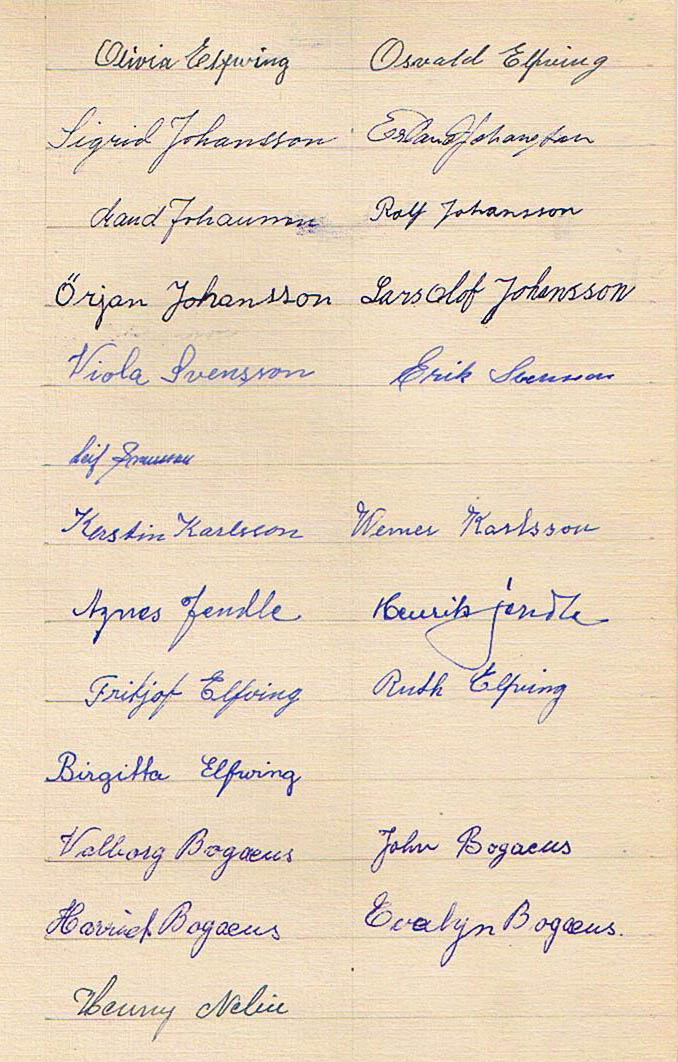 Olivia Elfwing Osvald Elfving
Sigrid Johansson Erland Johansson
Johansson Rolf Johansson
Örjan Johansson Lars Olof Johansson
Viola Svensson Erik Svensson
Leif Svensson
Kerstin Karlsson Werner Karlsson
Agnes Jendle Henrik Jendle
Fritjof Elfving Ruth Elfving
Birgitta Elfwing
Valborg Bogaeus John Bogaeus
Harriet Bogæus Evalyn Bogæus.
Henny Nelin